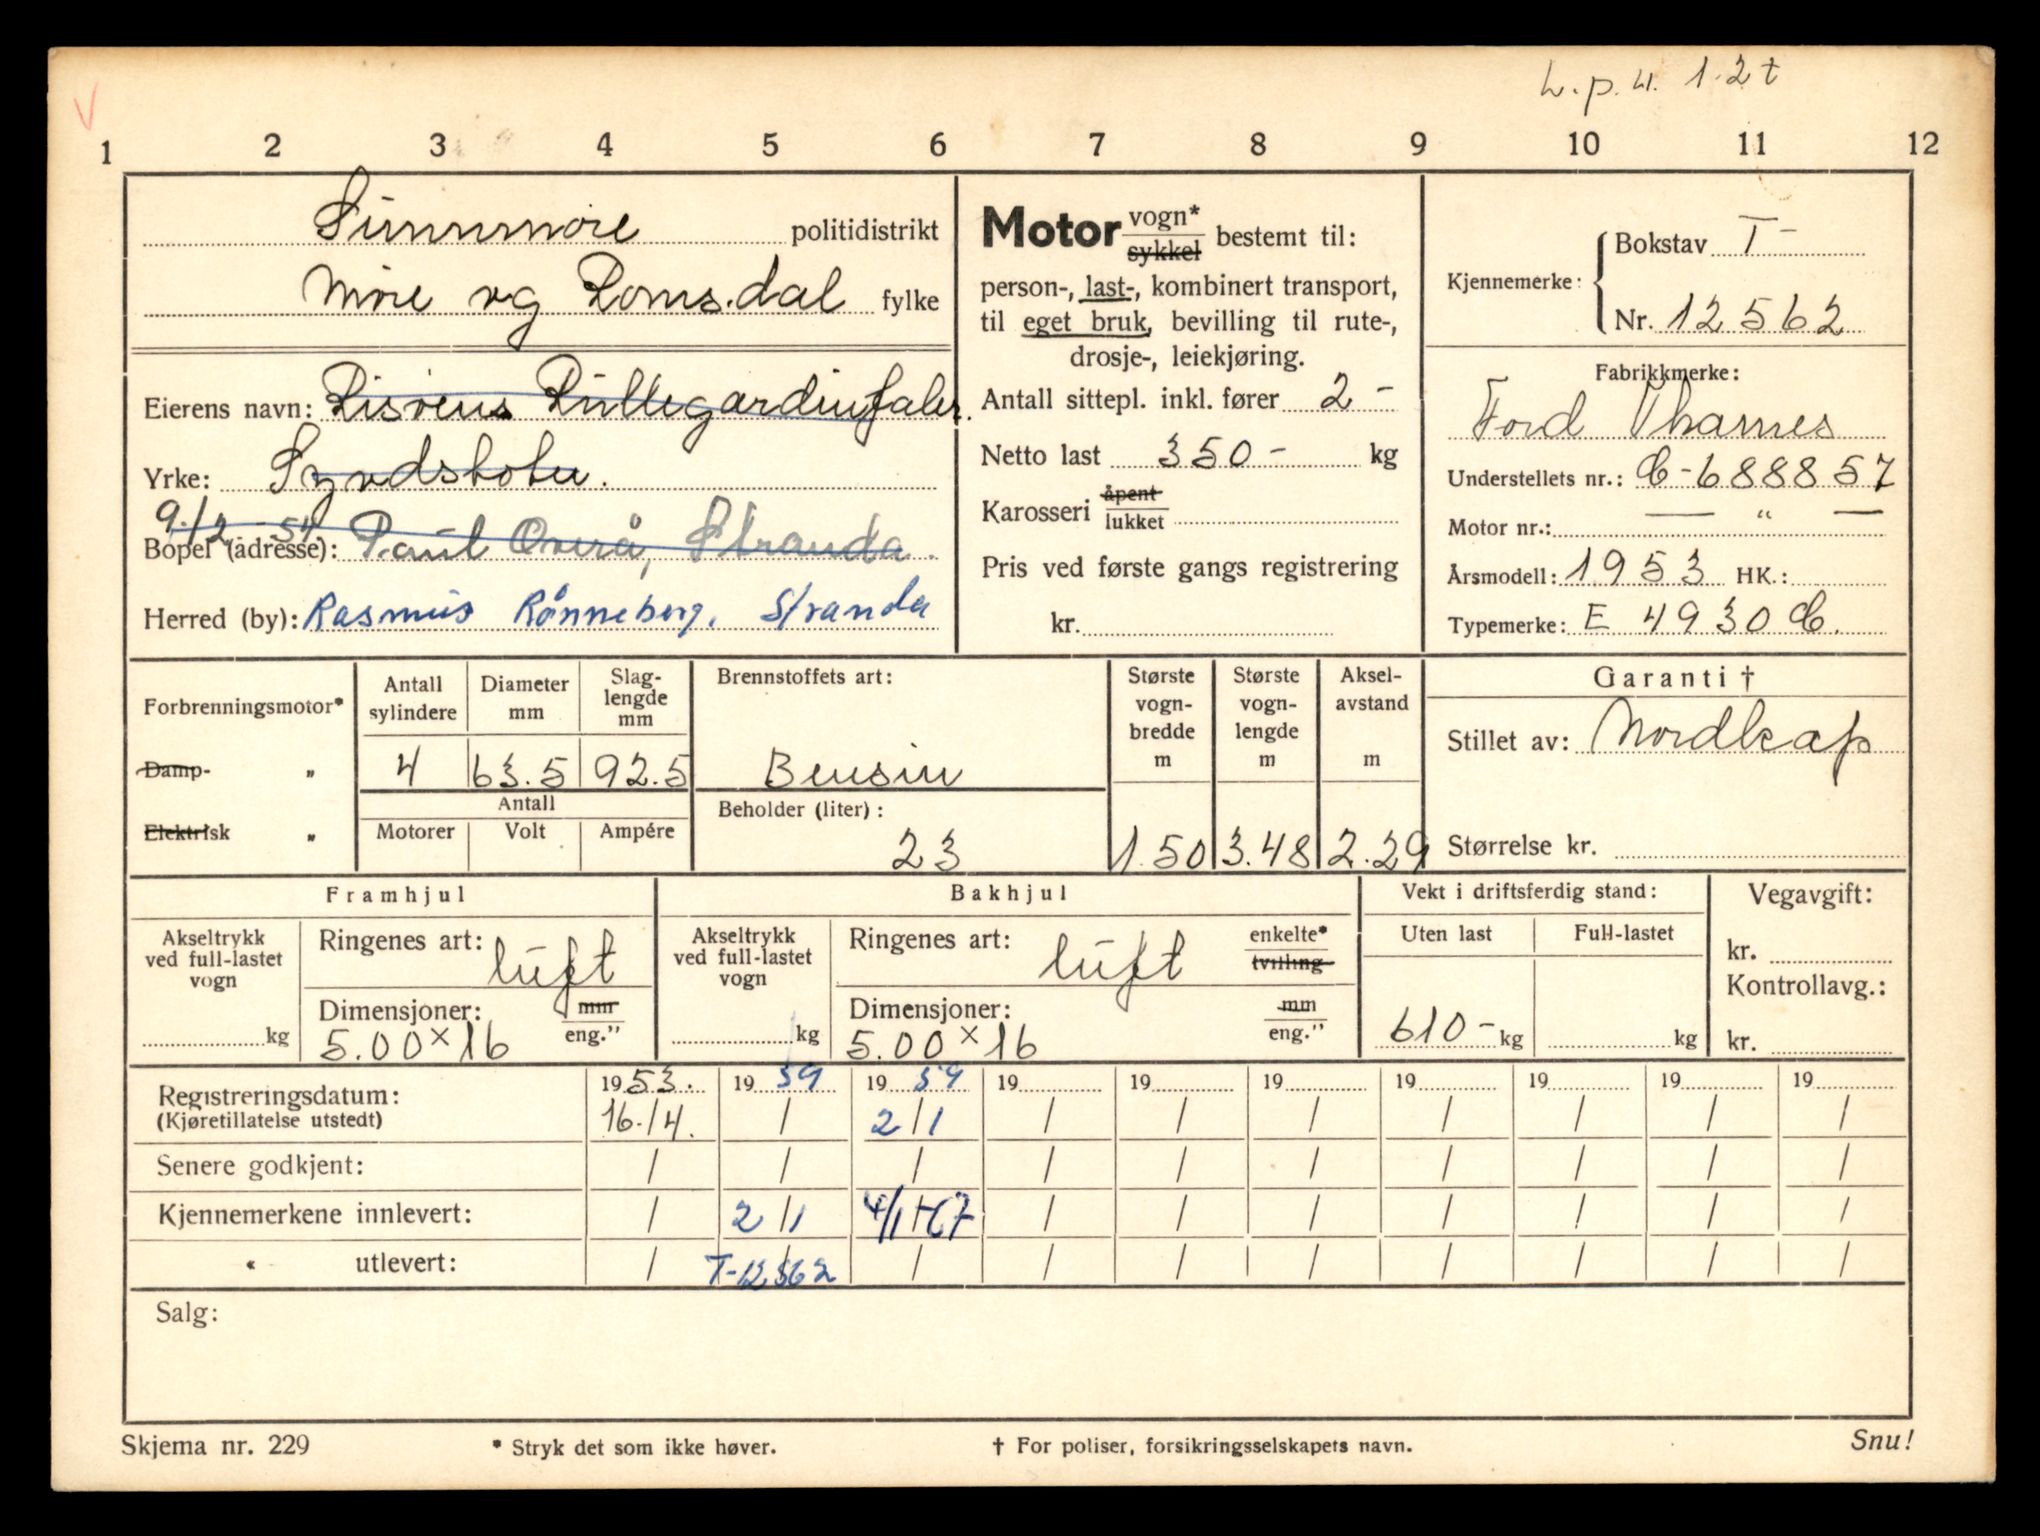 1 2 3 4 5 6 7 8 9 10 11 12
Sunnmøre politidistrikt
Møre og Romsdal fylke
Eierens navn: Risvens Rullegardinfabr.
Yrke: Syvdsbotn.
9/12-54
Bopel (adresse): Paul Overå, Stranda.
Herred (by): Rasmus Rønneberg, Stranda
Motor vogn* sykkel bestemt til:
person-, last-, kombinert transport,
til eget bruk, bevilling til rute-,
drosje-, leiekjøring.
Antall sittepl. inkl. fører 2 -
Netto last 350 - kg
Karosseri åpent lukket
Pris ved første gangs registrering
kr.
Kjennemerke: Bokstav T-
Nr. 12562
Fabrikkmerke:
Ford Thames
Understellets nr.: C-688857
Motor nr.: — " —
Årsmodell: 1953 HK.:
Typemerke: E 4930 C.
Forbrenningsmotor*
Damp- "
Elektrisk "
Antall sylindere
Diameter mm
Slaglengde mm
4 63.5 92.5
Antall
Motorer Volt Ampére
Brennstoffets art:
Bensin
Beholder (liter):
23
Største vogn-bredde m
1.50
Største vogn-lengde m
3.48
Aksel-avstand m
2.29
Garanti †
Stillet av: Nordkap
Størrelse kr.
Framhjul
Akseltrykk ved full-lastet vogn
kg
Ringenes art: luft
Dimensjoner: mm eng."
5.00 x 16
Bakhjul
Akseltrykk ved full-lastet vogn
kg
Ringenes art: luft enkelte* tvilling
Dimensjoner: mm eng."
5.00 x 16
Vekt i driftsferdig stand:
Uten last Full-lastet
610 - kg kg
Vegavgift:
kr.
Kontrollavg.:
kr.
Registreringsdatum: 1953. 1959 1959 19 19 19 19 19 19 19
(Kjøretillatelse utstedt) 16./4. / 2/1 / / / / / / /
Senere godkjent: / / / / / / / / / /
Kjennemerkene innlevert: / 2/1 4/1-67 / / / / / / /
« utlevert: / T-12562 / / / / / / / /
Salg:
Skjema nr. 229
* Stryk det som ikke høver.
† For poliser, forsikringsselskapets navn.
Snu!